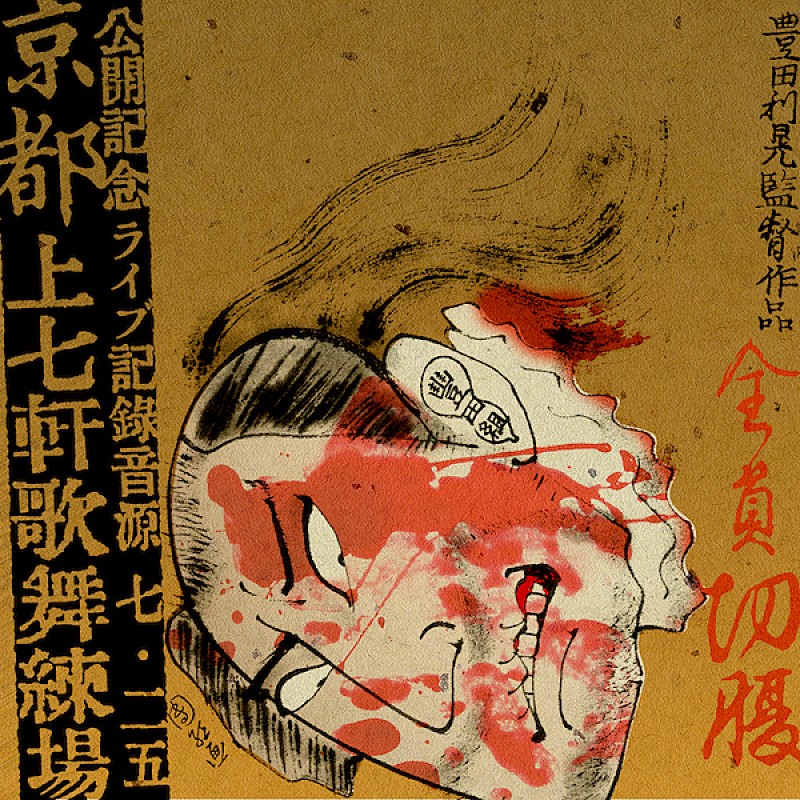 豊田利晃監督作品
全員切腹
公開記念ライブ記録音源 七・二五
京都上七軒歌舞練場
豊田組